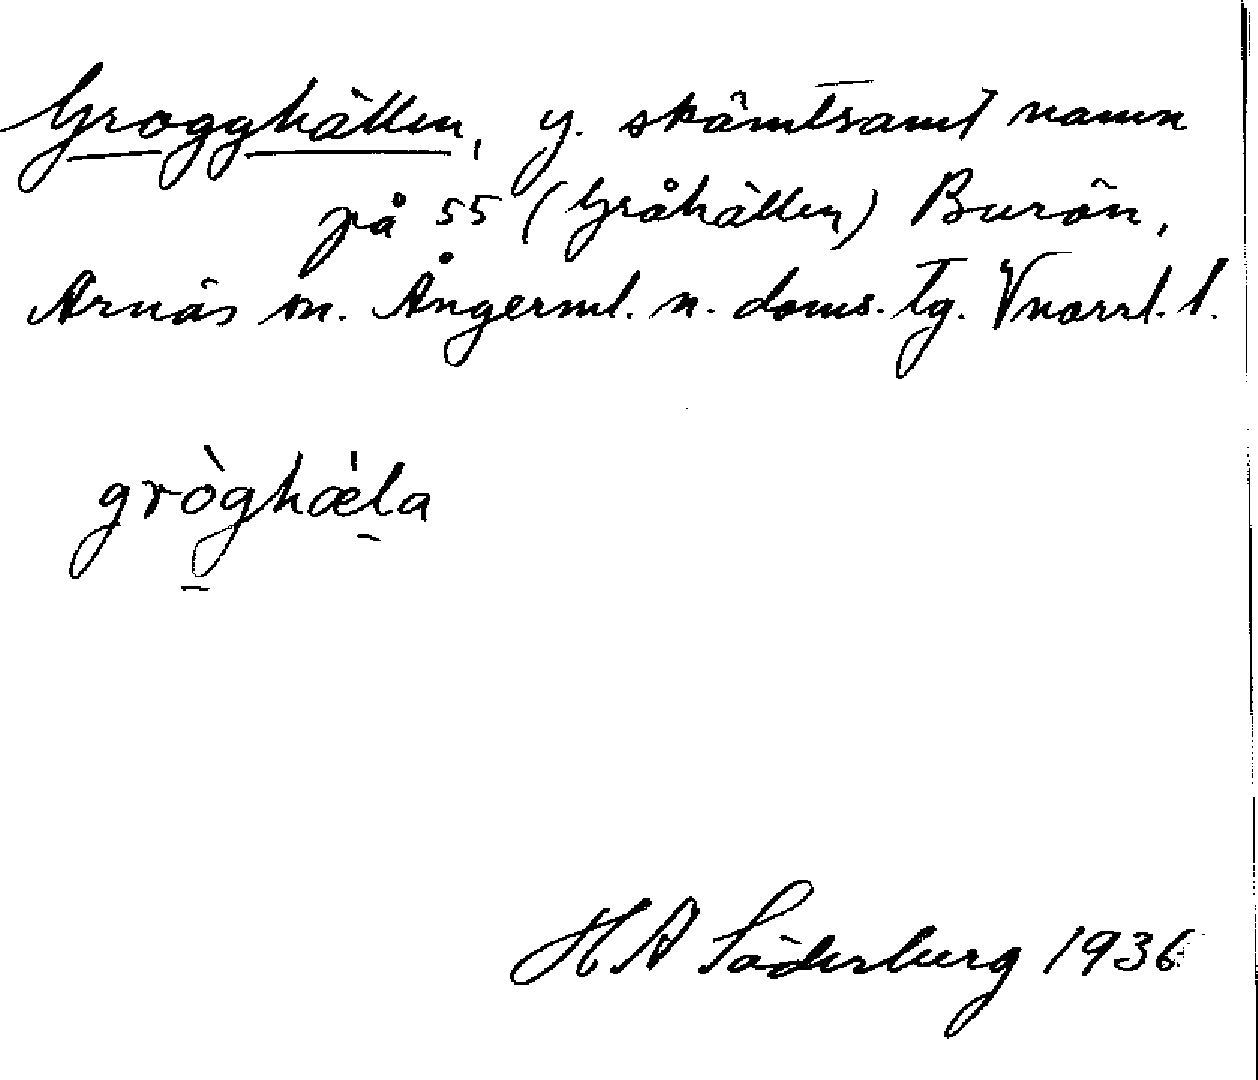 Grogghällen, y. skämtsamt namn
på 55 (Gråhällen) Burön,
Arnäs sn. Ångerml. n. doms. tg. Vnorrl. l.
gròghæ̀la
H A Söderberg 1936